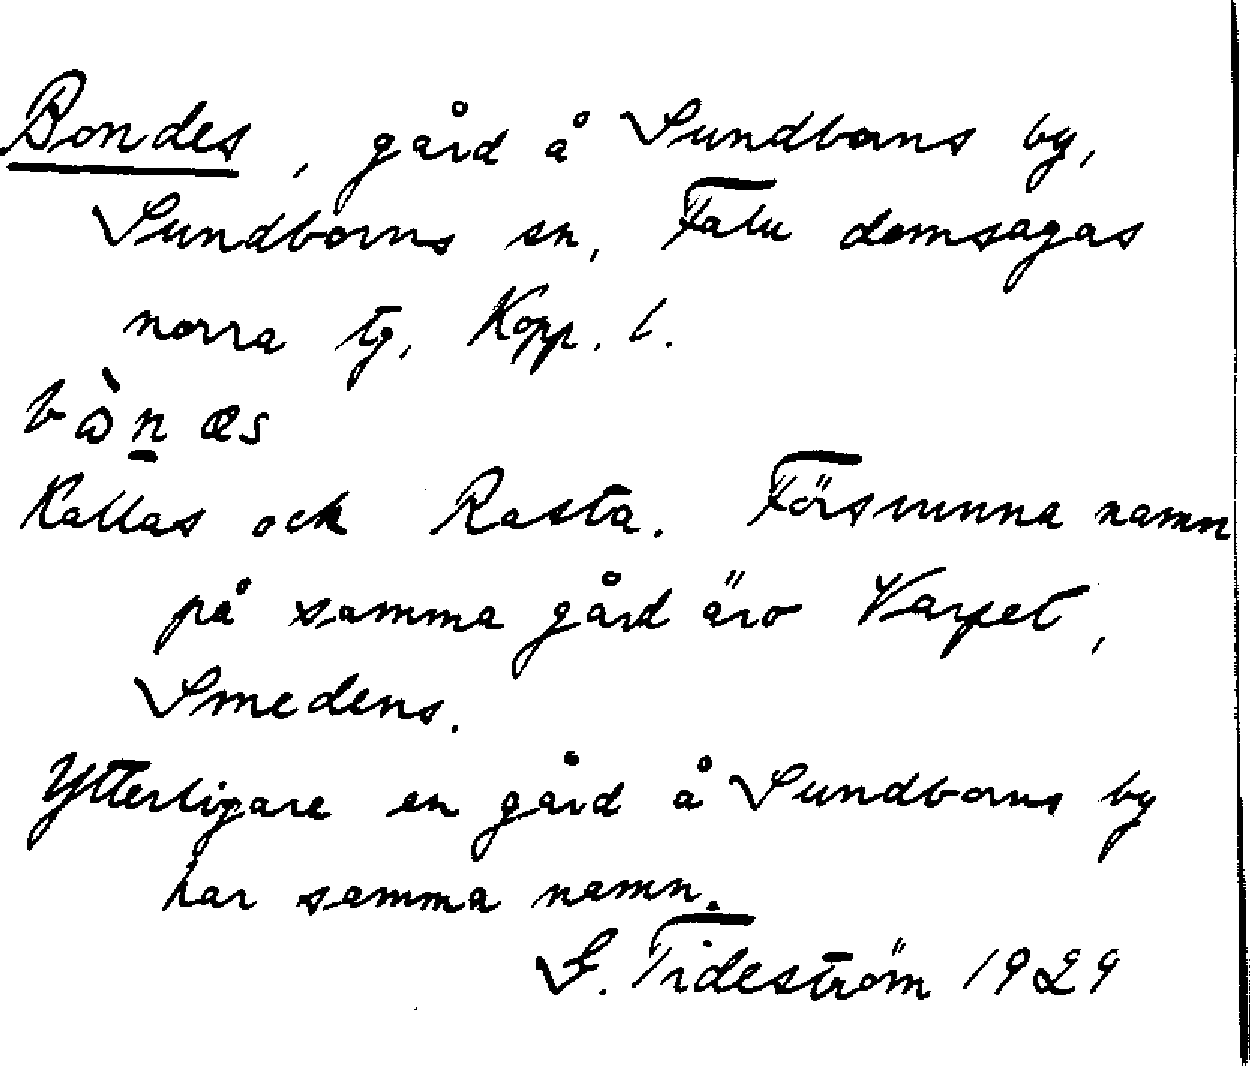 Bondes, gård å Sundborns by,
Sundborns sn, Falu domsagas
norra tg, Kopp. l.
bὼn æs
Kallas ock Rasta. Försvunna namn
på samma gård äro Varpet,
Smedens.
Ytterligare en gård å Sundborns by
har samma namn.
G. Tideström 1929